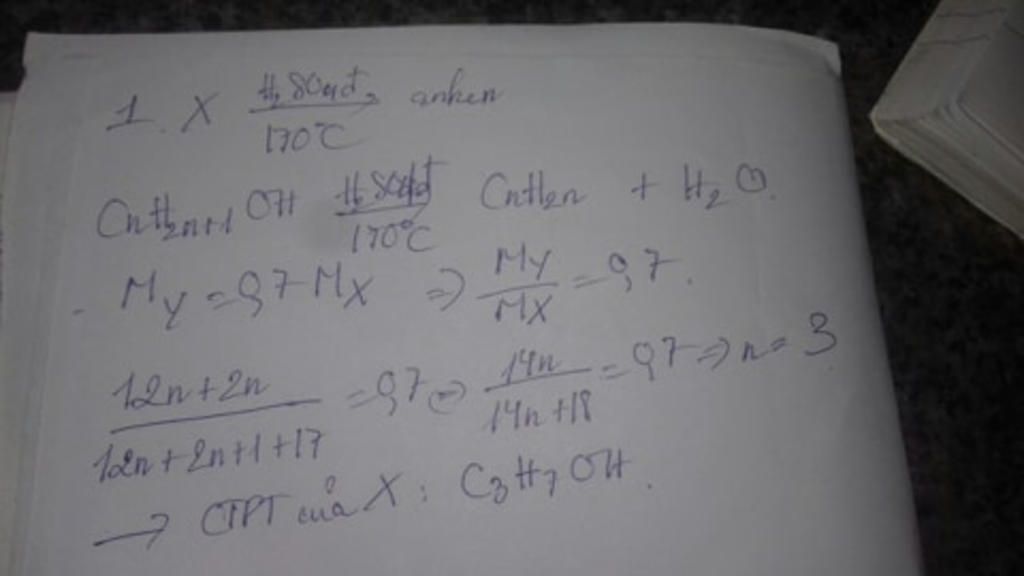 1. X H2SO4đ, 170°C anken
CnH2n+1OH H2SO4đ 170°C CnH2n + H2O.
- MY = 0,7 MX => MY/MX = 0,7.
12n+2n/12n+2n+1+17 = 0,7 => 14n/14n+18 = 0,7 => n = 3
→ CTPT của X : C3H7OH.